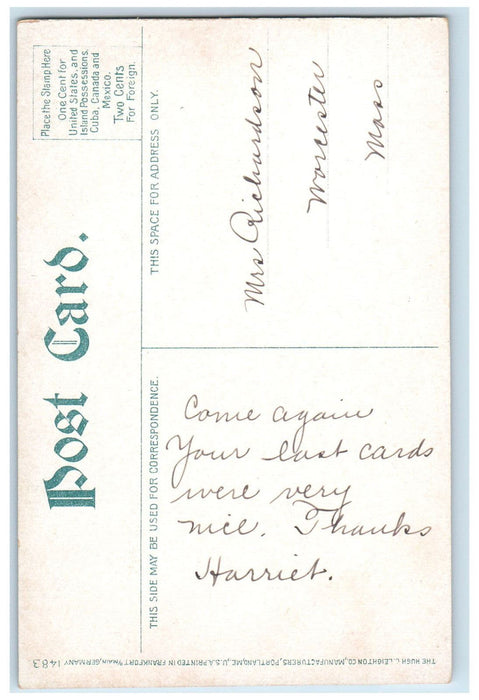 Post Card.
Place the Stamp Here
One Cent for
United States, and
Island Possessions.
Cuba, Canada and
Mexico.
Two Cents
For Foreign.
THIS SIDE MAY BE USED FOR CORRESPONDENCE.
THIS SPACE FOR ADDRESS ONLY.
Come again
Your last cards
were very
nice. Thanks
Harriet.
Mrs Richardson
Worcester
Mass
THE HUGH C. LEIGHTON CO., MANUFACTURERS, PORTLAND, ME., U.S.A. PRINTED IN FRANKFORT O/MAIN, GERMANY 1483